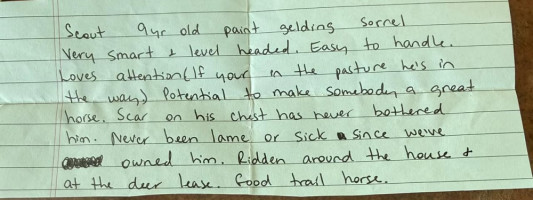 Scout 9yr old paint gelding sorrel
Very smart & level headed. Easy to handle.
Loves attention (If your in the pasture he's in
the way) Potential to make somebody a great
horse. Scar on his chest has never bothered
him. Never been lame or sick since we've
owned him. Ridden around the house &
at the deer lease. Good trail horse.